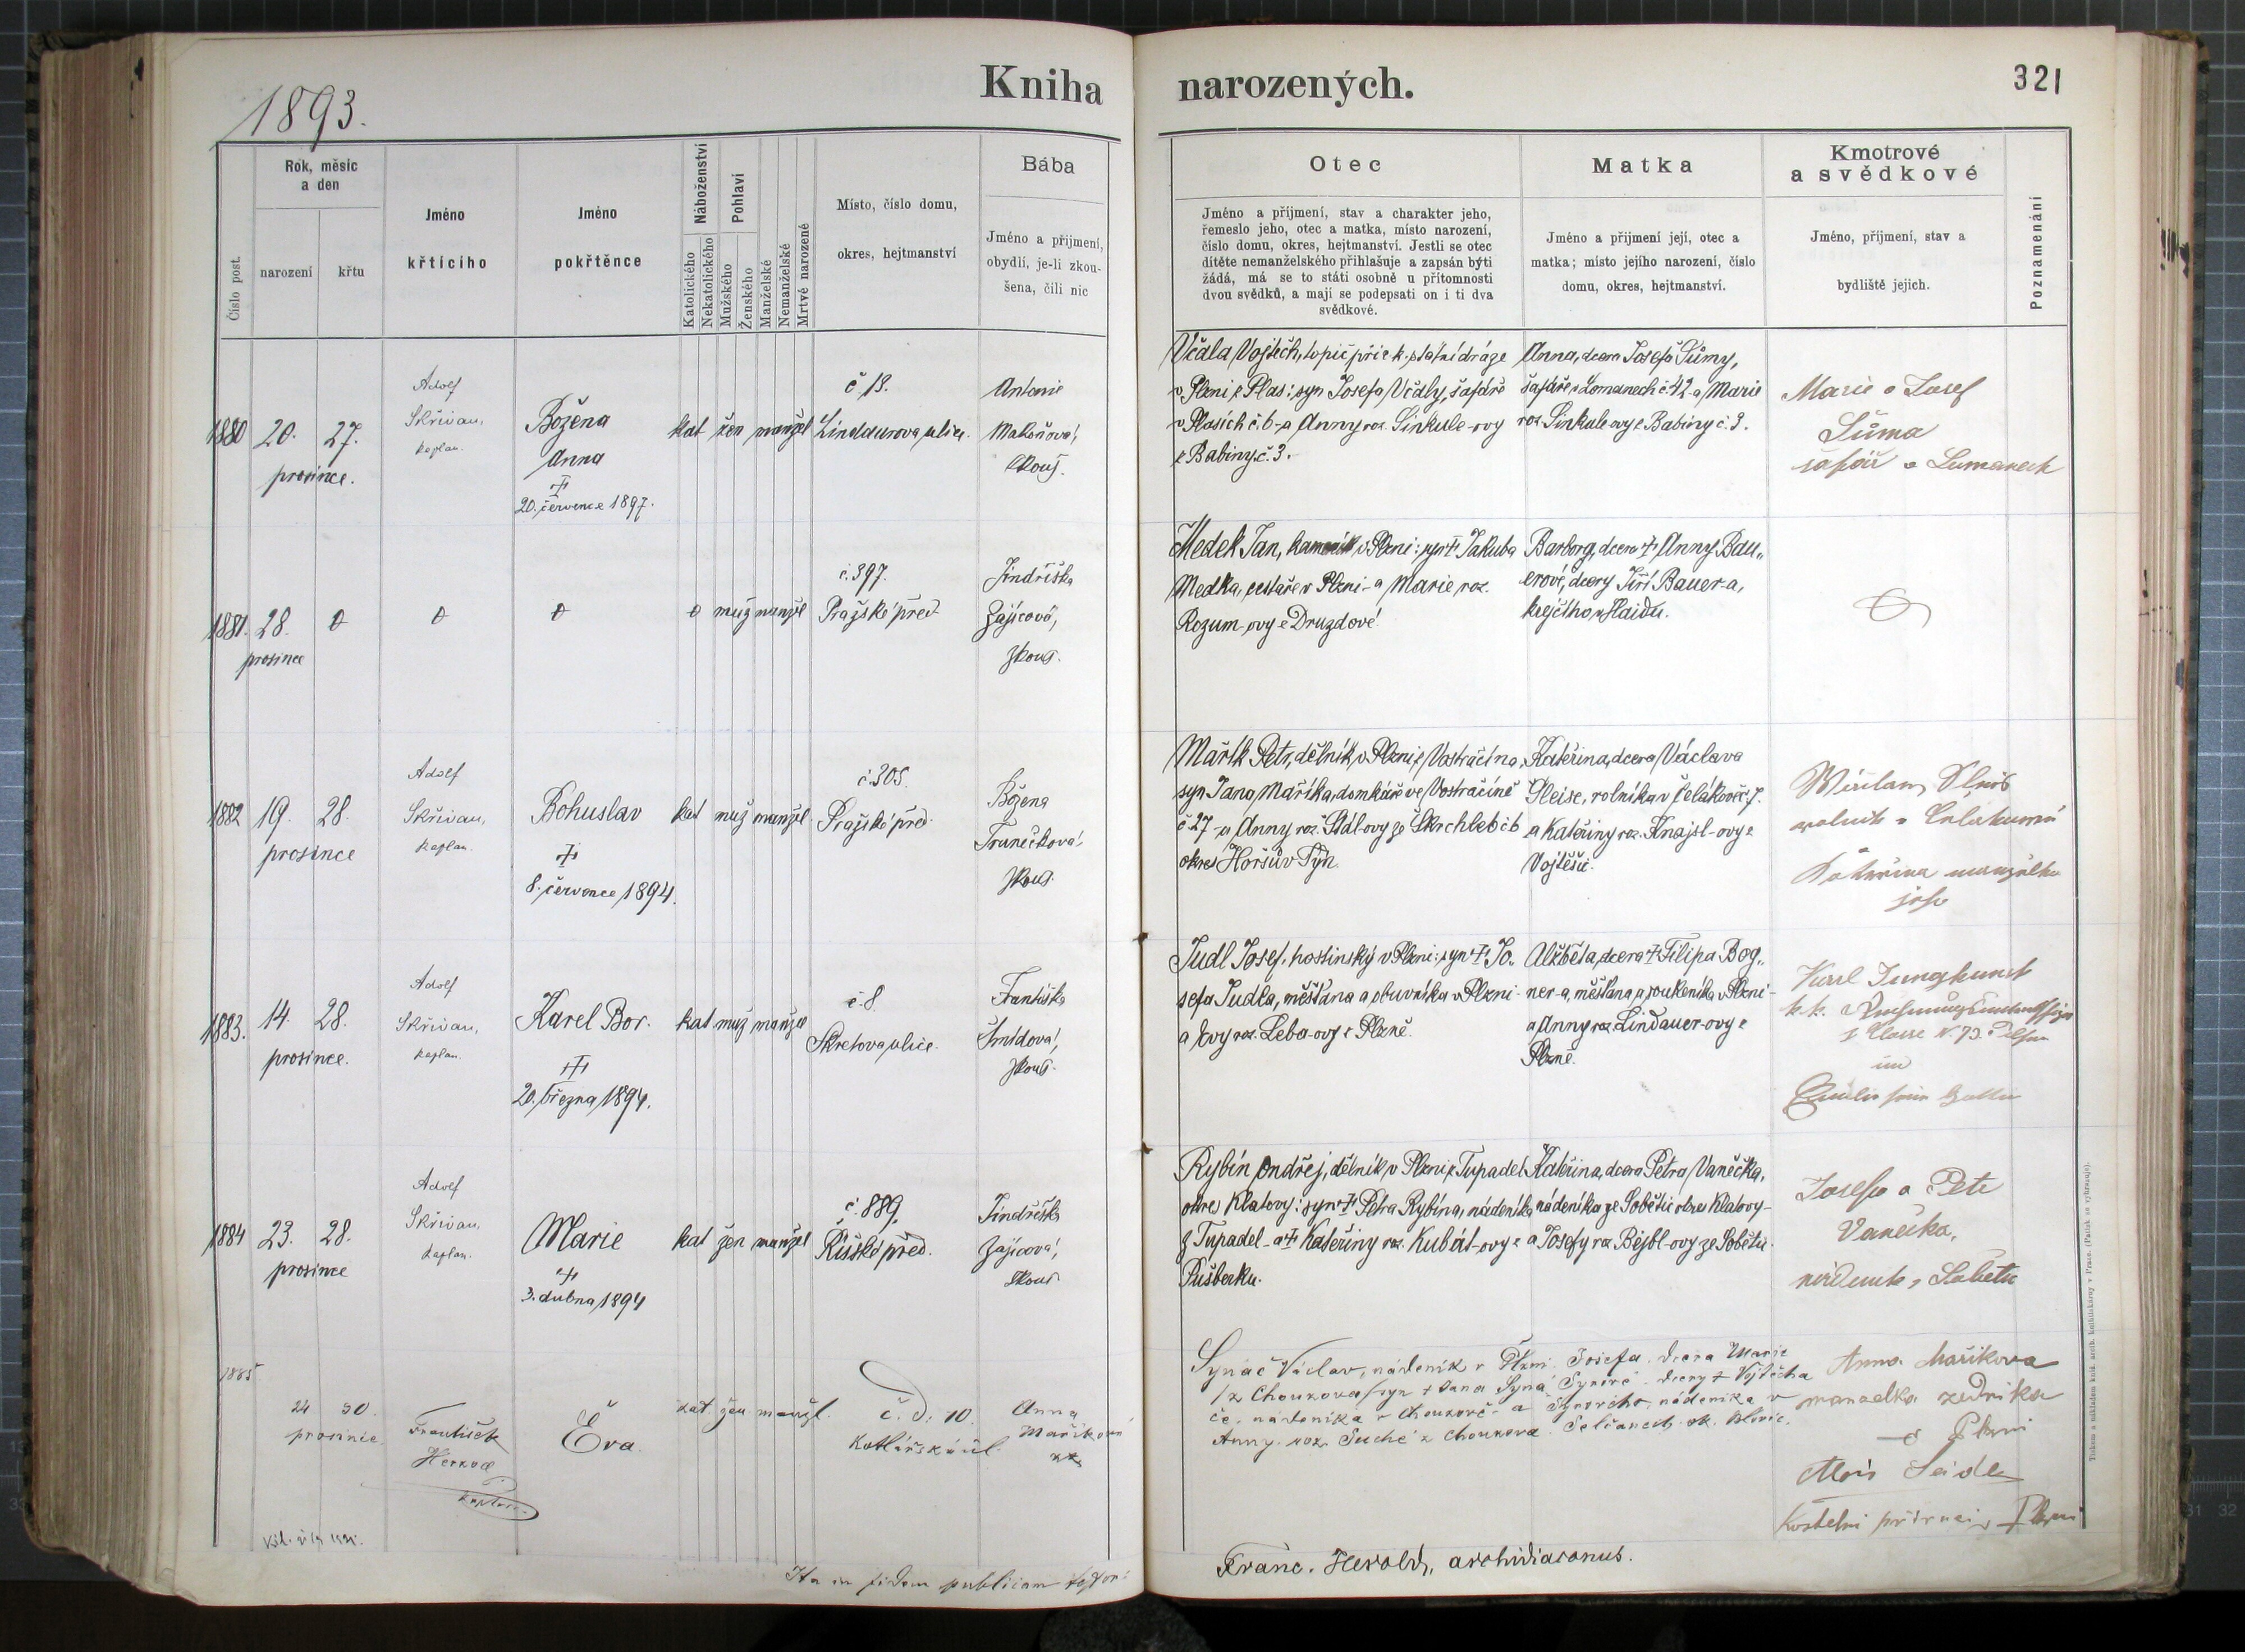 1893.
Kniha narozených.
321
Číslo post.
Rok, měsíc
a den
narození
křtu
Jméno
křtícího
Jméno
pokřtěnce
Náboženství
Katolického
Nekatolického
Pohlaví
Mužského
Ženského
Manželské
Nemanželské
Mrtvě narozené
Místo, číslo domu,
okres, hejtmanství
Bába
Jméno a příjmení,
obydlí, je-li zkou-
šena, čili nic
Otec
Jméno a příjmení, stav a charakter jeho,
řemeslo jeho, otec a matka, místo narození,
číslo domu, okres, hejtmanství. Jestli se otec
dítěte nemanželského přihlašuje a zapsán býti
žádá, má se to státi osobně u přítomnosti
dvou svědků, a mají se podepsati on i ti dva
svědkové.
Matka
Jméno a příjmení její, otec a
matka; místo jejího narození, číslo
domu, okres, hejtmanství.
Kmotrové
a svědkové
Jméno, příjmení, stav a
bydliště jejich.
Poznamenání
1880
20.
27.
prosince.
Adolf
Skřivan,
kaplan.
Božena
Anna
20. července 1897.
kat žen manžel
č 13.
Lindaurova ulice.
Antonie
Makoňová,
zkouš.
Včala Vojtěch, topič při c. k. státní dráze
v Plzni z Plas: syn Josefa Včaly, šafáře
v Plasích č. 6 - a Anny roz. Sinkule-ovy
z Babiny č. 3.
Anna, dcera Josefa Šůmy,
šafáře v Lomanech č. 42 - a Marie
roz. Sinkule-ovy z Babiny č. 3.
Marie a Josef
Šůma
šafář v Lomanech
1881.
28.
prosince
muž manžel
č. 397.
Pražské před.
Jindřiška
Zajícová,
zkouš.
Medek Jan, kameník v Plzni: syn Jakuba
Medka, cestáře v Plzni - a Marie roz.
Rozum-ovy z Druzdové.
Barbora, dcera Anny Bau-
erové, dcery Jiří Bauer-a,
krejčího v Haidu.
1882
19.
28.
prosince
Adolf
Skřivan,
kaplan.
Bohuslav
8. července 1894.
kat muž manžel
č 305.
Pražské před.
Božena
Trunečková,
zkouš.
Mařík Petr, dělník v Plzni z Vostračína,
syn Jana Maříka, domkáře ve Vostračíně
č 27 - a Anny roz. Stál-ovy ze Škrchleb č 6
okres Horšův Týn.
Kateřina, dcera Václava
Gleise, rolníka v Čelákově č. 7.
a Kateřiny roz. Knajsl-ovy z
Vojtěšic.
Kateřina manželka
jeho
1883.
14.
28.
prosince.
Adolf
Skřivan,
kaplan.
Karel Bor.
20. března 1894.
kat muž manžel
č. 8.
Skretova ulice.
Františka
Šmídová,
zkouš.
Judl Josef, hostinský v Plzni: syn Jo-
sefa Judla, měšťana a obuvníka v Plzni -
a Evy roz. Leba-ovy z Plzně.
Alžběta, dcera Filipa Bog-
ner-a, měšťana a soukeníka v Plzni -
a Anny roz. Lindauer-ovy z
Plzně.
Karl Junghundt
k. k.
1884
23.
28.
prosince
Adolf
Skřivan,
kaplan.
Marie
3. dubna 1894
kat žen manžel
č. 889.
Říšské před.
Jindřiška
Zajícová,
zkouš.
Rybín Ondřej, dělník v Plzni z Tupadel
okres Klatovy: syn Petra Rybína, nádeníka
z Tupadel - a Kateřiny roz. Kubát-ovy z
Pušberku.
Kateřina, dcera Petra Vanečka,
nádeníka ze Sobětic okres Klatovy -
a Josefy roz. Bejbl-ovy ze Sobětic.
Josefa a Petr
Vanečka,
nádeník, Sobětic
1885
24
30.
prosince
František
Herold
kaplan
Eva.
kat. žen. manžl.
č. d. 10.
Kotlářská ul.
Anna
Maříková
zk.
Synáč Václav, nádeník v Plzni
/z Chouzova/ syn Jana Syná-
če, nádeníka v Chouzově - a
Anny roz. Suché z Chouzova.
Josefa dcera Marie
dcery Vojtěcha
nádeníka v
Anna Maříkova
manželka zedníka
z Plzni
Alois Seidl
Kostelní v Plzni
Ita in fidem publicam
Franc. Herold, archidiaconus.